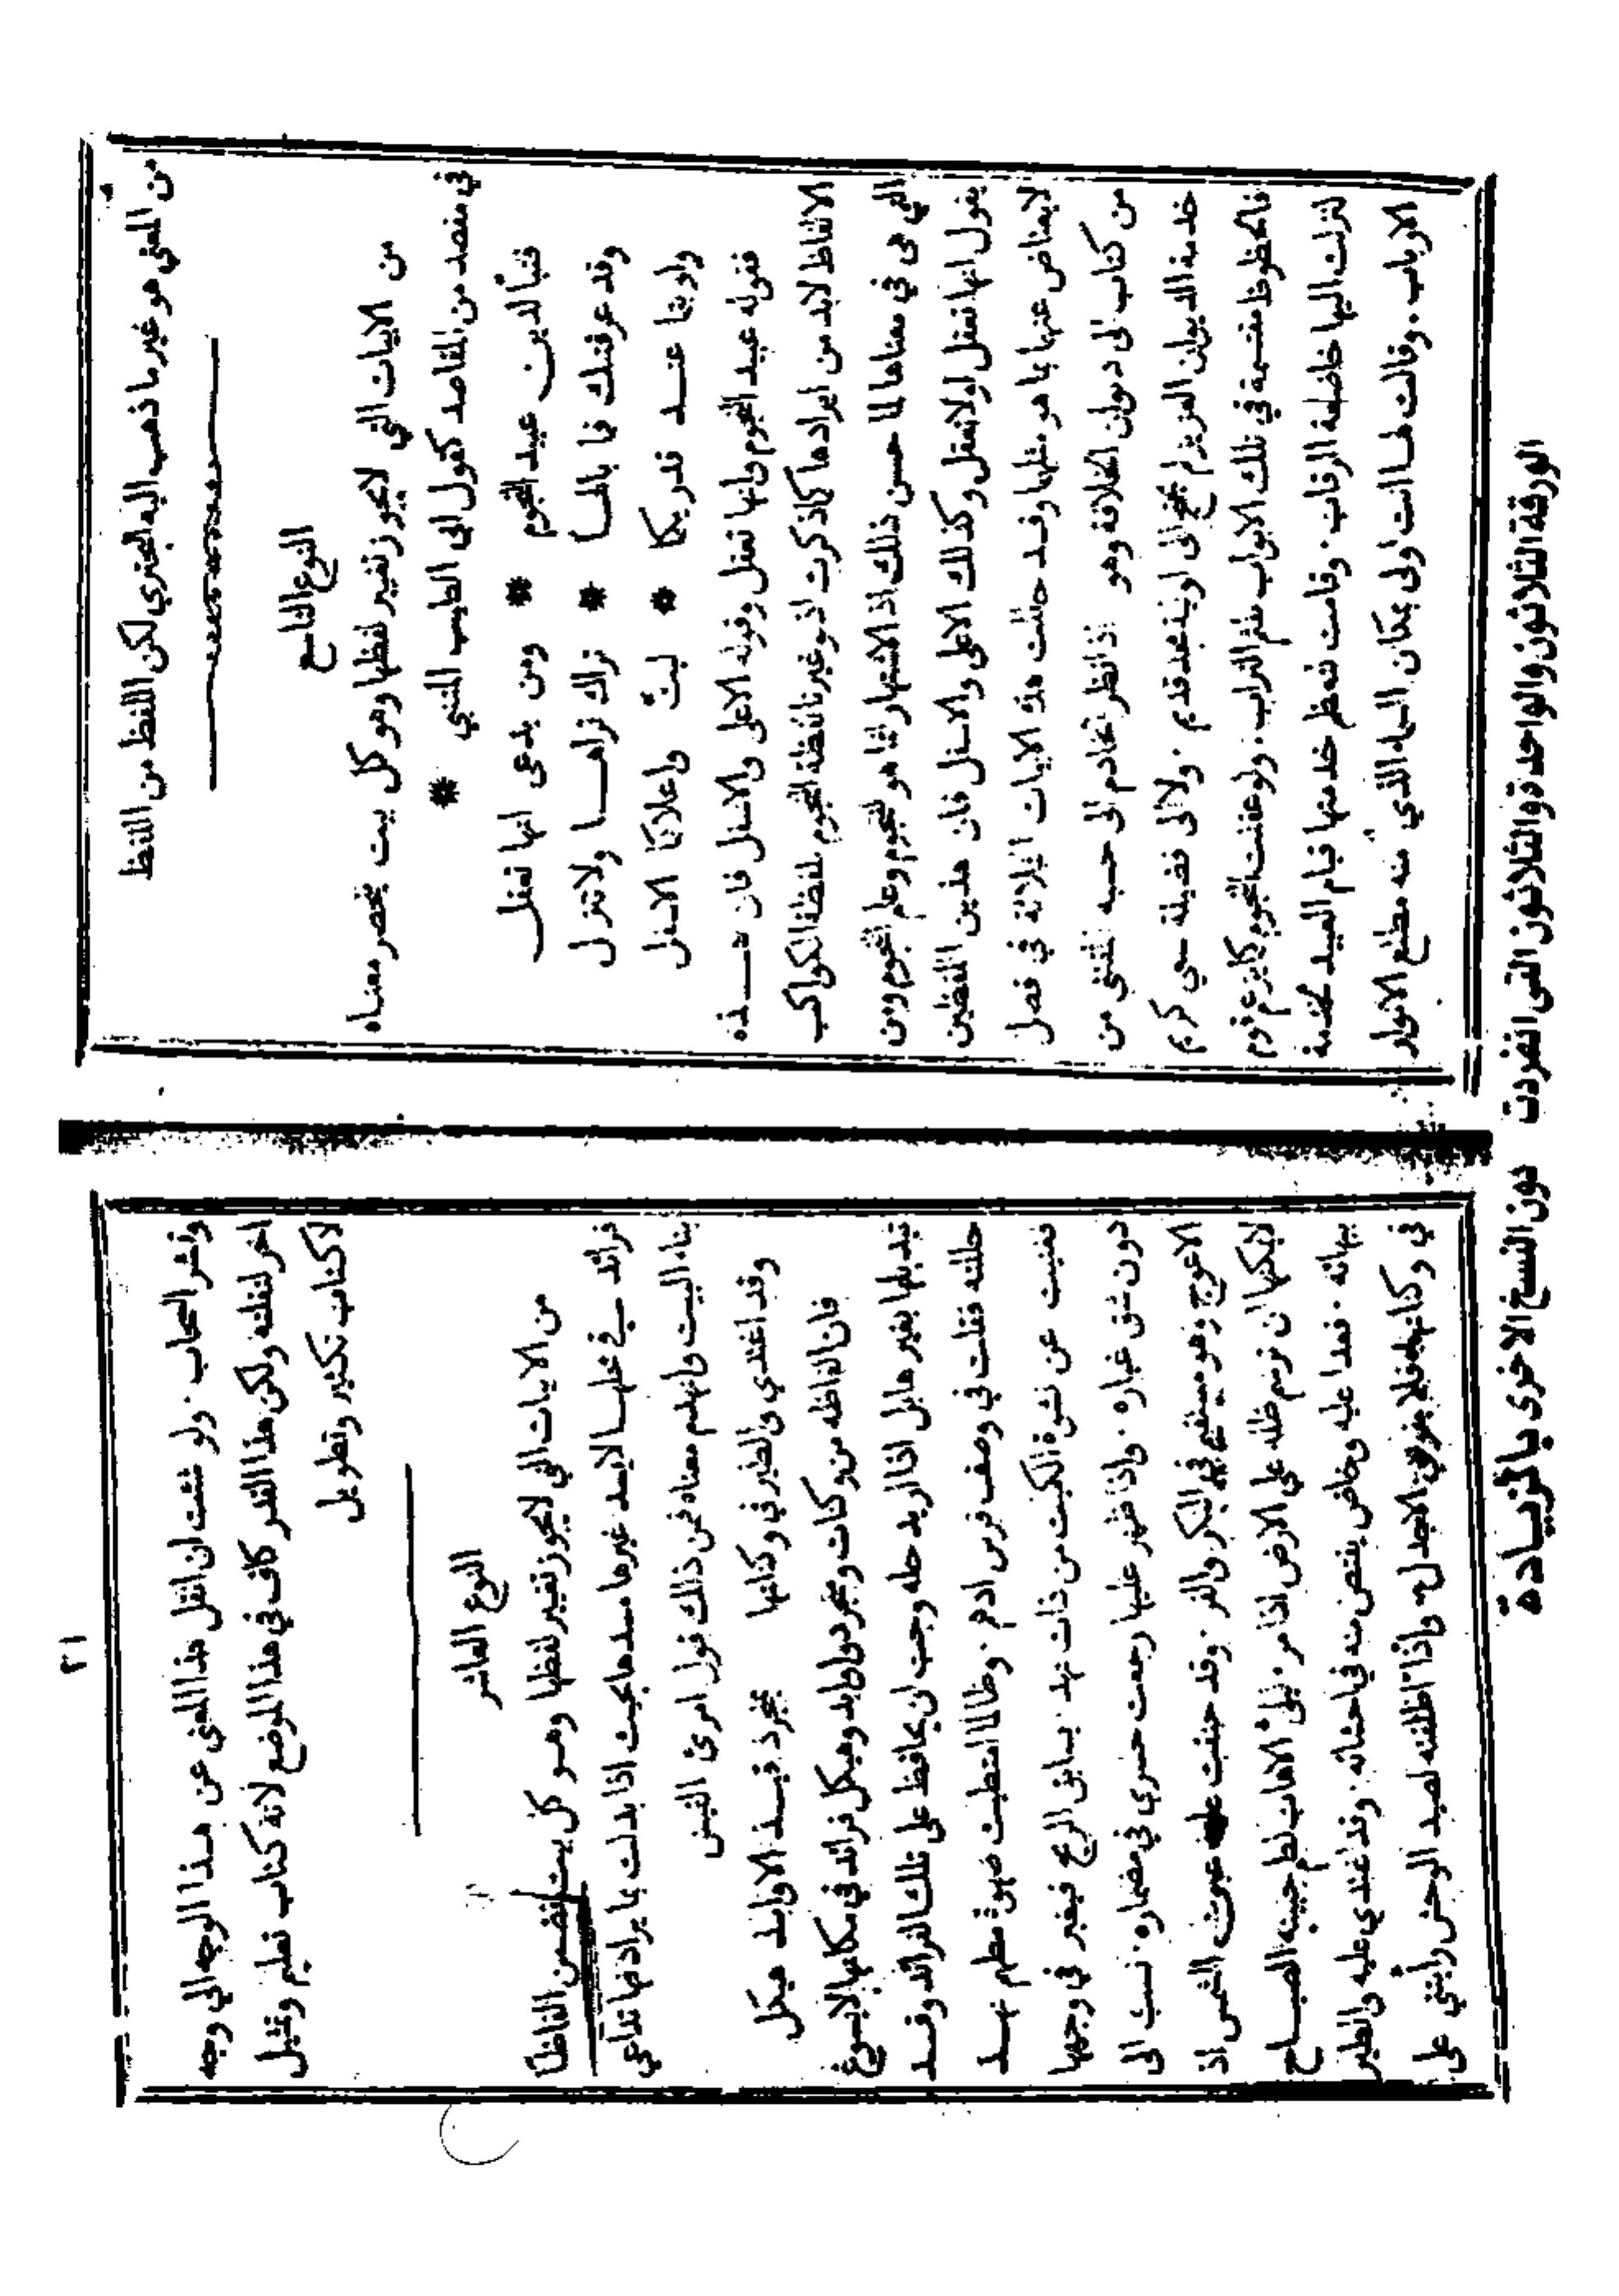 من المعنى هو غير ما ذهب اليه البحتري لكن اللفظ من اللفظ
النوع التاسع
من الابيات التي لايجوز تغيير لفظها وهو كل بيت يختصر معناه
في مقصد من المقاصد كقول ابي الطيب المتنبي *
فتبا لدين عبيد النجوم * ومن يدعى انها تعقل
وقد عرفتك فما بالها * تراك تراها ولا تنزل
ولو بتما عند قدريكما * لبت واعلاكما الاسفل
فقوله عبيد النجوم وانها تعقل وقوله الاعلى والاسفل فان هذه
الالفاظ لابد من ايرادها كما ذكرت اذ لو غيرنا لفظة النجوم بلفظة الكواكب
التي هي في معناها لما حسن ذلك اذ الاشتهار انما هو للنجوم وعلم النجوم ومن
يقول انها تعقل او لا تعقل وكذلك الاعلى والاسفل فان هذين اللفظين
لايعتاض عنها بما هو مثلها وقد حللت هذه الابيات الثلاثة في فصل
من كتاب الى ديوان الخلافة وهو اذا نظر الخادم الى حسبه المقتنى من
خدمة الديوان العزيز لم يحتج الى اولية مجد قديم . ولا الى فضيلة سعي كريم
فالحظوظ مقسمة في تلك الابواب بلثم التراب . ولو عقلت النجوم كما يزعم قوم
لنزلت اليها خاضعة الرقاب . وقامت تنتظر خدمتها قيام العبيد لخدمة
الارباب . وقالت لها انت اولى بمكان السماء الذي منه مطلع الانوار
الورقة الثلاثون والواحدة والثلاثون التي انفردت
٢١
وانشر السحاب . ولو شئت ان انقل هذا المعنى عن هذا الوجه الى وجه
اخر لنقلته ولكن هذا القدر كاف في هذا الموضع لانه كتاب تعليم وتمثيل
لا كتاب تكثير وتطويل
النوع العاشر
من الابيات التي لايجوز تغيير لفظها وهو كل بيت يتضمن الفاظاً
فرائد في محلها لايسد غيرها مسدها بحيث اذا بدلت بما يرادفها تداعى
بناء البيت وانهدم معناه فمن ذلك قول امرئ القيس
وقد اغتدي والطير في وكناتها بمنجرد قيد الاوابد هيكل
فان الفاظه من وكنات ومنجرد واوابد وهيكل فرائد في مكانها لايسوغ
تبديلها بغيرها بل اذا اريد حله وجب ان يحافظ على تلك الفرائد وقد
حللته فقلت في وصف فرس ادهم . وطالما امتطيت صهوة مطهم نهد
فغنيت عن نشوة الكميت من ذات نهد . يسابق الريح فيغبر في وجهها
دون شق غباره . واذا ظهر عليها رجعت حسرى في مضماره . نسب الى
الاعوج وهو مستقيم في الكر والفر . وقد حنقت عليه عين الشمس اذ
لايمكنها ان ترسم ظله على الارض اذا مر . ليلي الاهاب لطم جبينه الصباح
ببهائه . فعدا عليه وخاض يقتص منه في احشائه . وقد اغتدي عليه والطير
في وكناتها فلا يفوتني الاجدل . واذا اطلقته لصيد الوحش رأيتني على
دون النسخ الاخرى بالزيادة